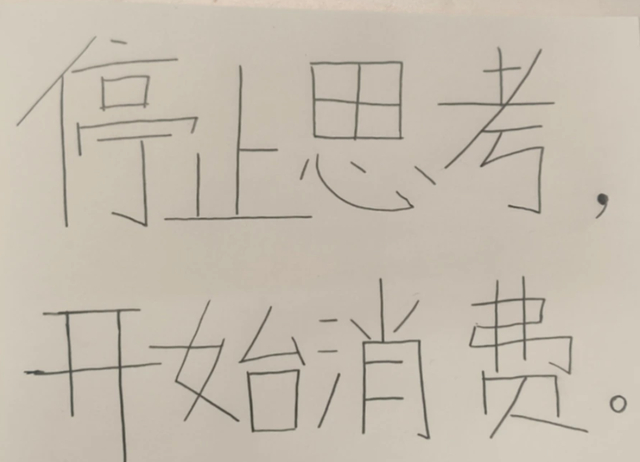 停止思考,
开始消费。